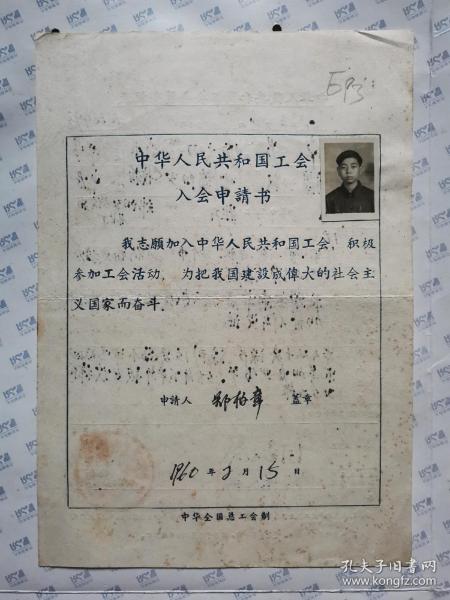 中华人民共和国工会
入会申請书
我志願加入中华人民共和国工会，积极
参加工会活动，为把我国建設成偉大的社会主
义国家而奋斗．
申請人 郑柏章 盖章
1960 年 2 月 15 日
中华全国总工会制
孔夫子旧书网
www.kongfz.com